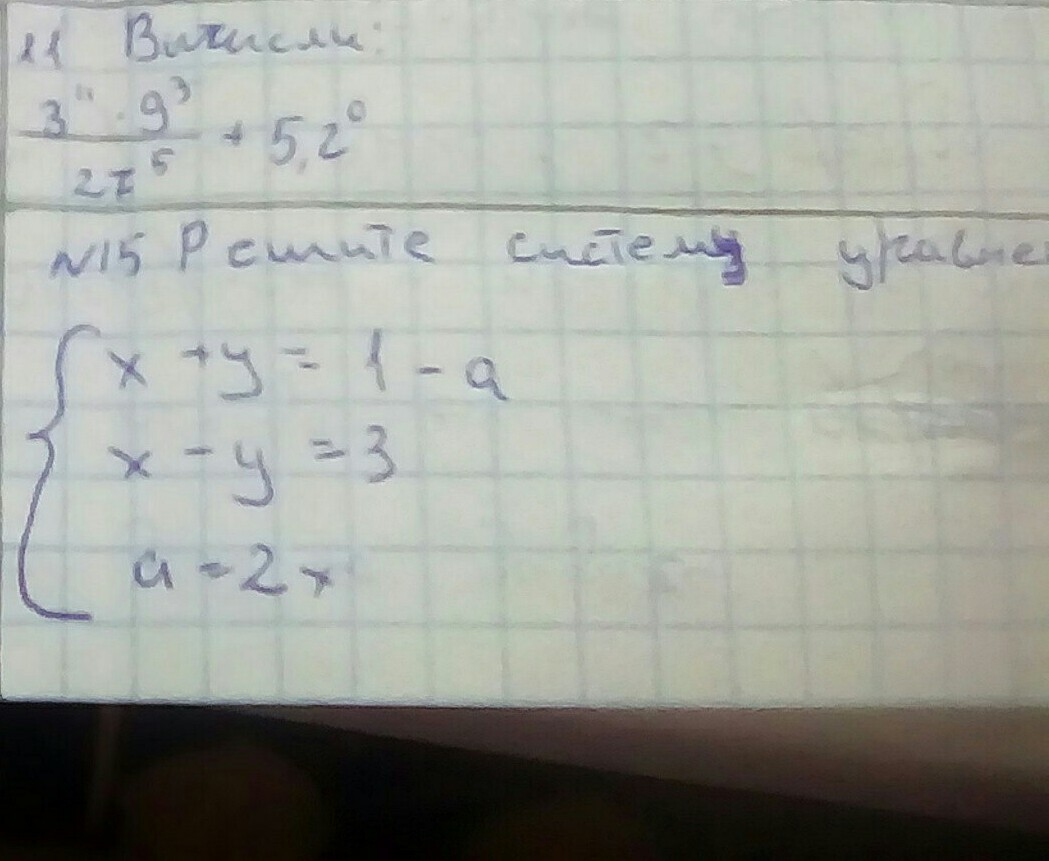 11 Вычисли:
3¹¹ · 9³
27⁵
+ 5,2⁰
N15 Решите систему уравне
x + y = 1 - a
x - y = 3
a = 2x